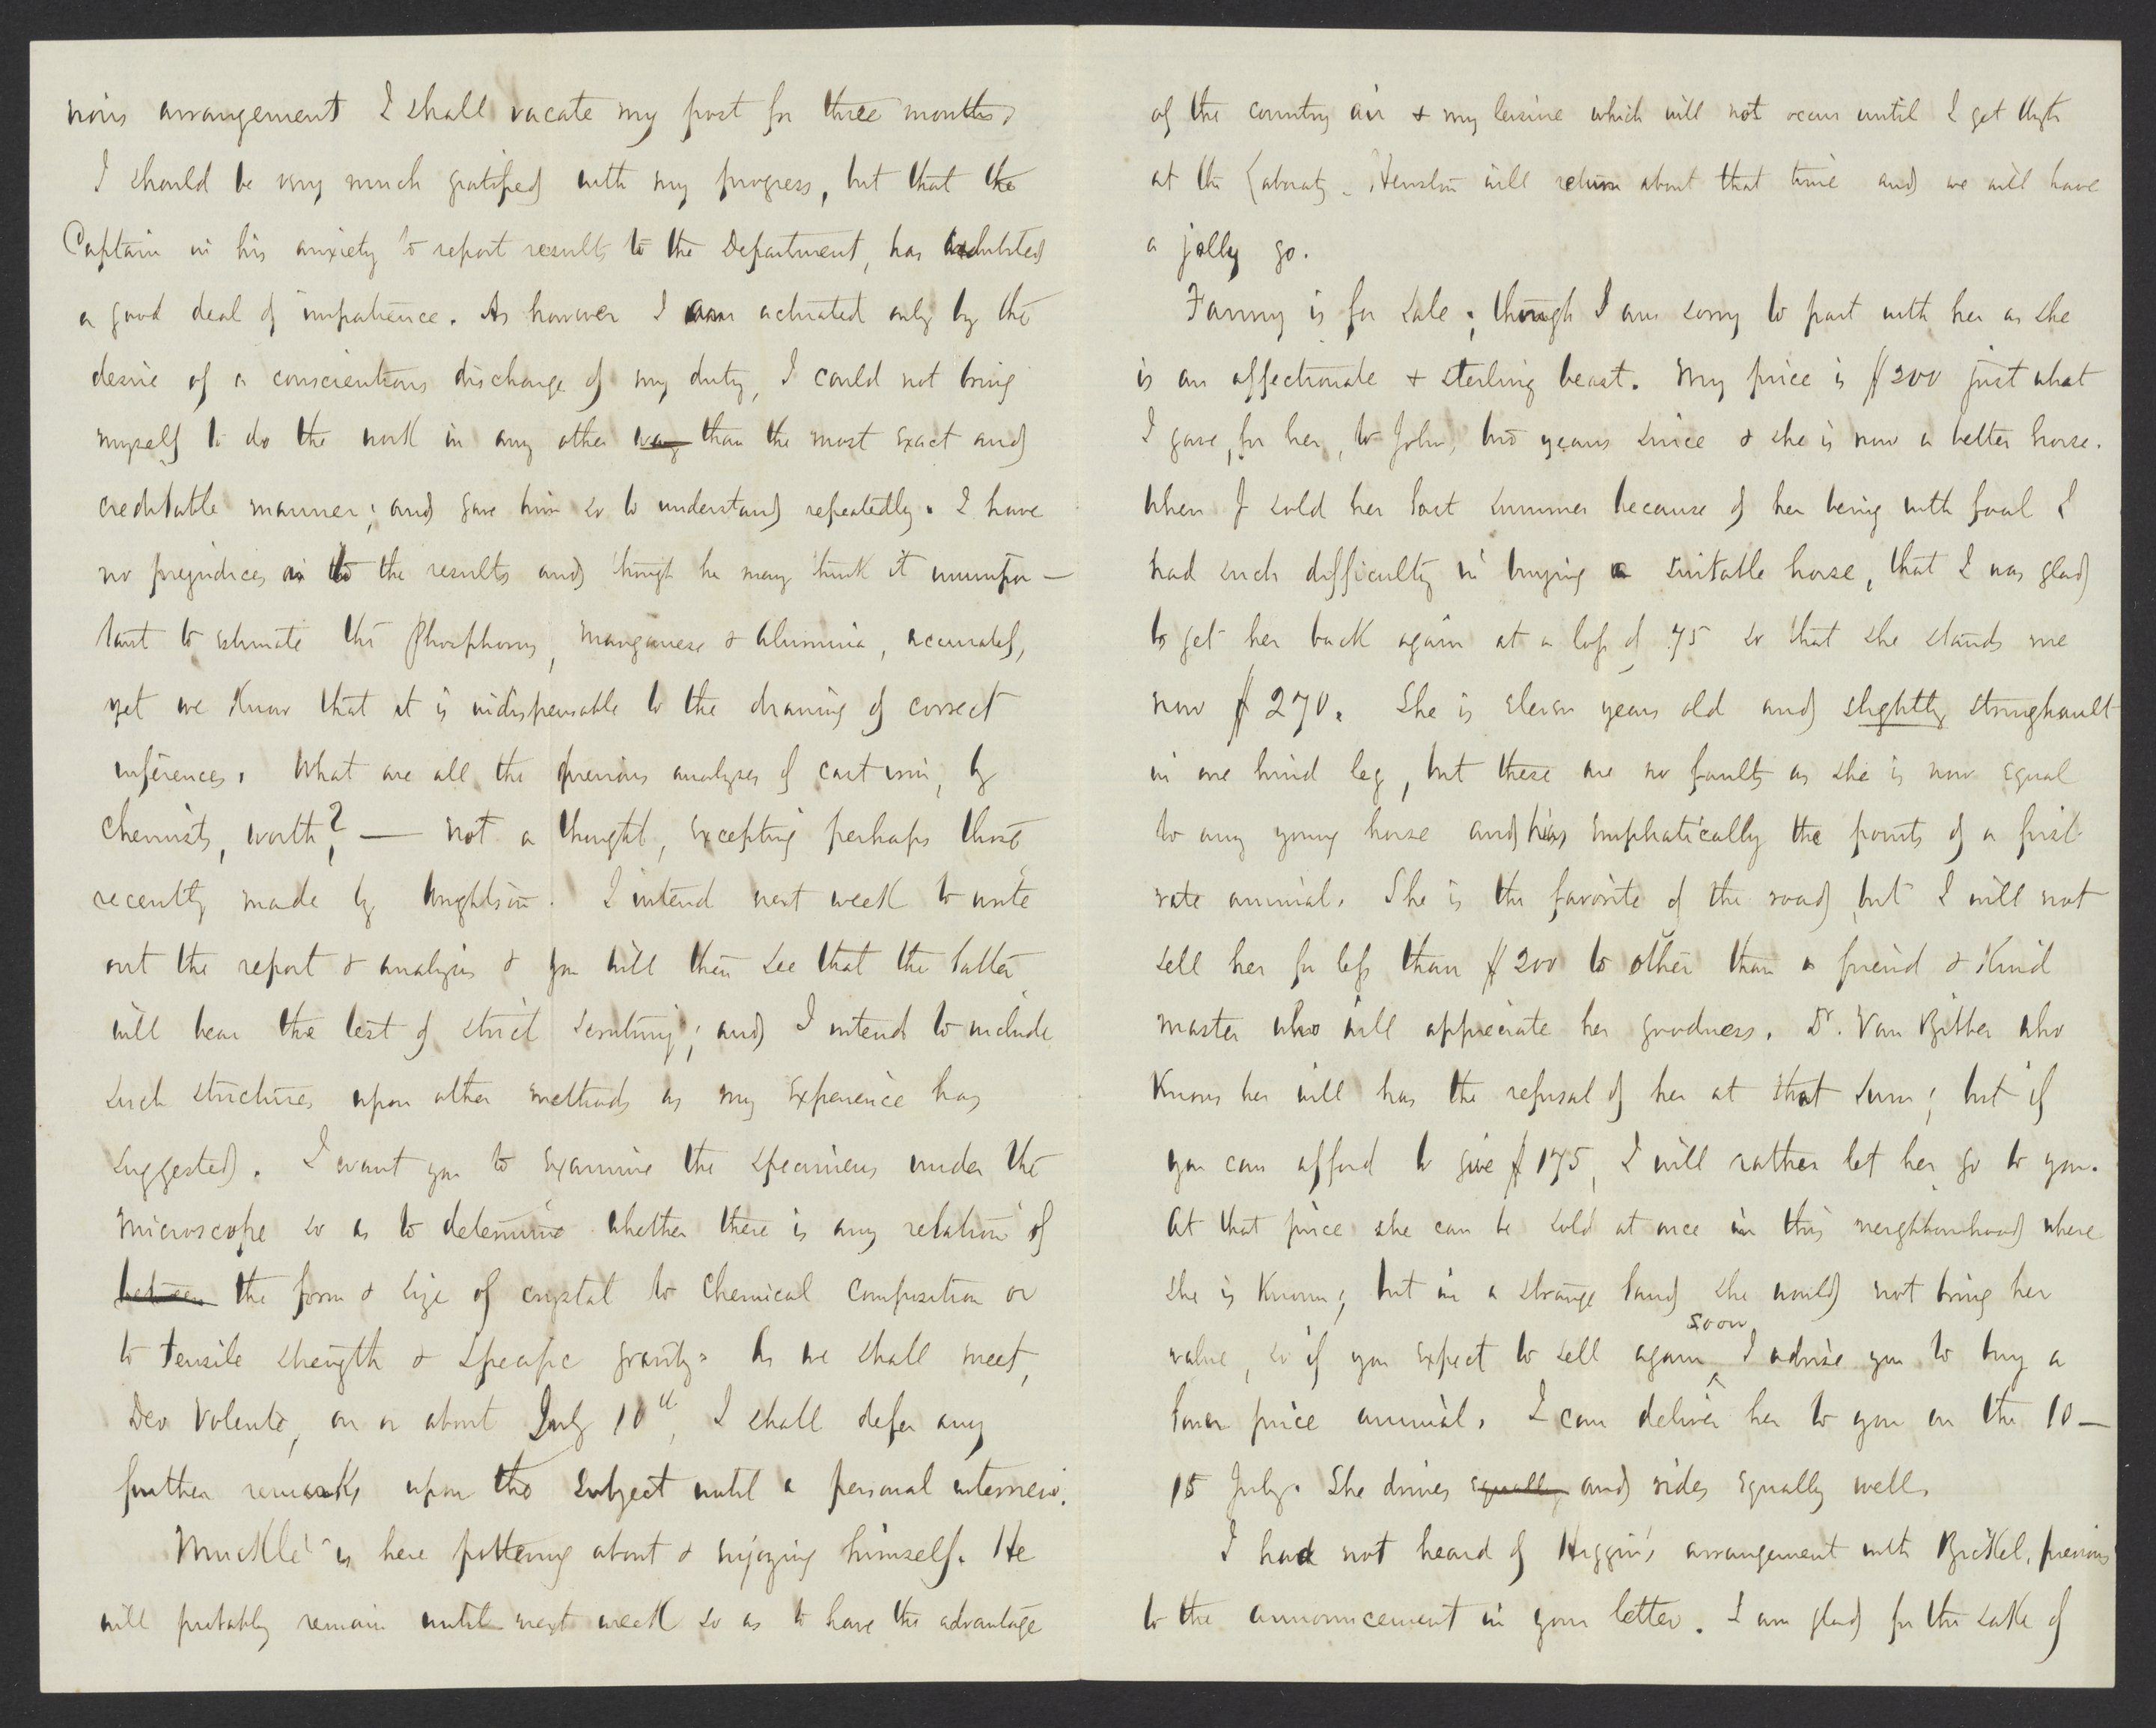 nous arrangement I shall vacate my post for three months.
I should be very much gratified with my progress, but that the
Captain in his anxiety to report results to the Department, has exhibited
a good deal of impatience. As however I am actuated only by the
desire of a conscientious discharge of my duty, I could not bring
myself to do the work in any other way than the most exact and
creditable manner; and gave him so to understand repeatedly. I have
no prejudices as to the results and though he may think it unimpor-
tant to estimate the Phosphorus, Manganese & Alumina, accurately,
yet we know that it is indispensable to the drawing of correct
inferences. What are all the previous analyses of cast iron, by
Chemists, worth? — not a thought, excepting perhaps those
recently made by Wrightson. I intend next week to write
out the report & analysis & you will then see that the latter
will bear the test of strict scrutiny; and I intend to include
such strictures upon other methods as my experience has
suggested. I want you to examine the specimens under the
Microscope so as to determine whether there is any relation of
between the form & size of crystal to chemical composition or
to tensile strength & specific gravity. As we shall meet,
Deo Volente, on or about July 10th, I shall defer any
further remarks upon the subject until a personal interview.
Muckle is here pottering about & enjoying himself. He
will probably remain until next week so as to have the advantage
of the country air & my leisure which will not occur until I get thro
at the Laboraty. Henston will return about that time and we will have
a jolly go.
Fanny is for sale; though I am sorry to part with her as she
is an affectionate & sterling beast. My price is $200 just what
I gave, for her, to John, two years since & she is now a better horse.
When I sold her last summer because of her being with foal I
had such difficulty in buying a suitable horse, that I was glad
to get her back again at a loss of 75 so that she stands me
now $270. She is eleven years old and slightly stringhault
in one hind leg, but these are no faults as she is now equal
to any young horse and has emphatically the points of a first
rate animal. She is the favorite of the road, but I will not
sell her for less than $200 to other than a friend & kind
master who will appreciate her goodness. Dr. Van Bibber who
knows her will has the refusal of her at that sum; but if
you can afford to give $175, I will rather let her go to you.
At that price she can be sold at once in this neighbourhood where
she is known; but in a strange land she would not bring her
value, so if you expect to sell again soon I advise you to buy a
lower price animal. I can deliver her to you on the 10-
15 July. She drives equally and rides equally well.
I had not heard of Higgin's arrangement with Bickel, previous
to the announcement in your letter. I am glad for the sake of